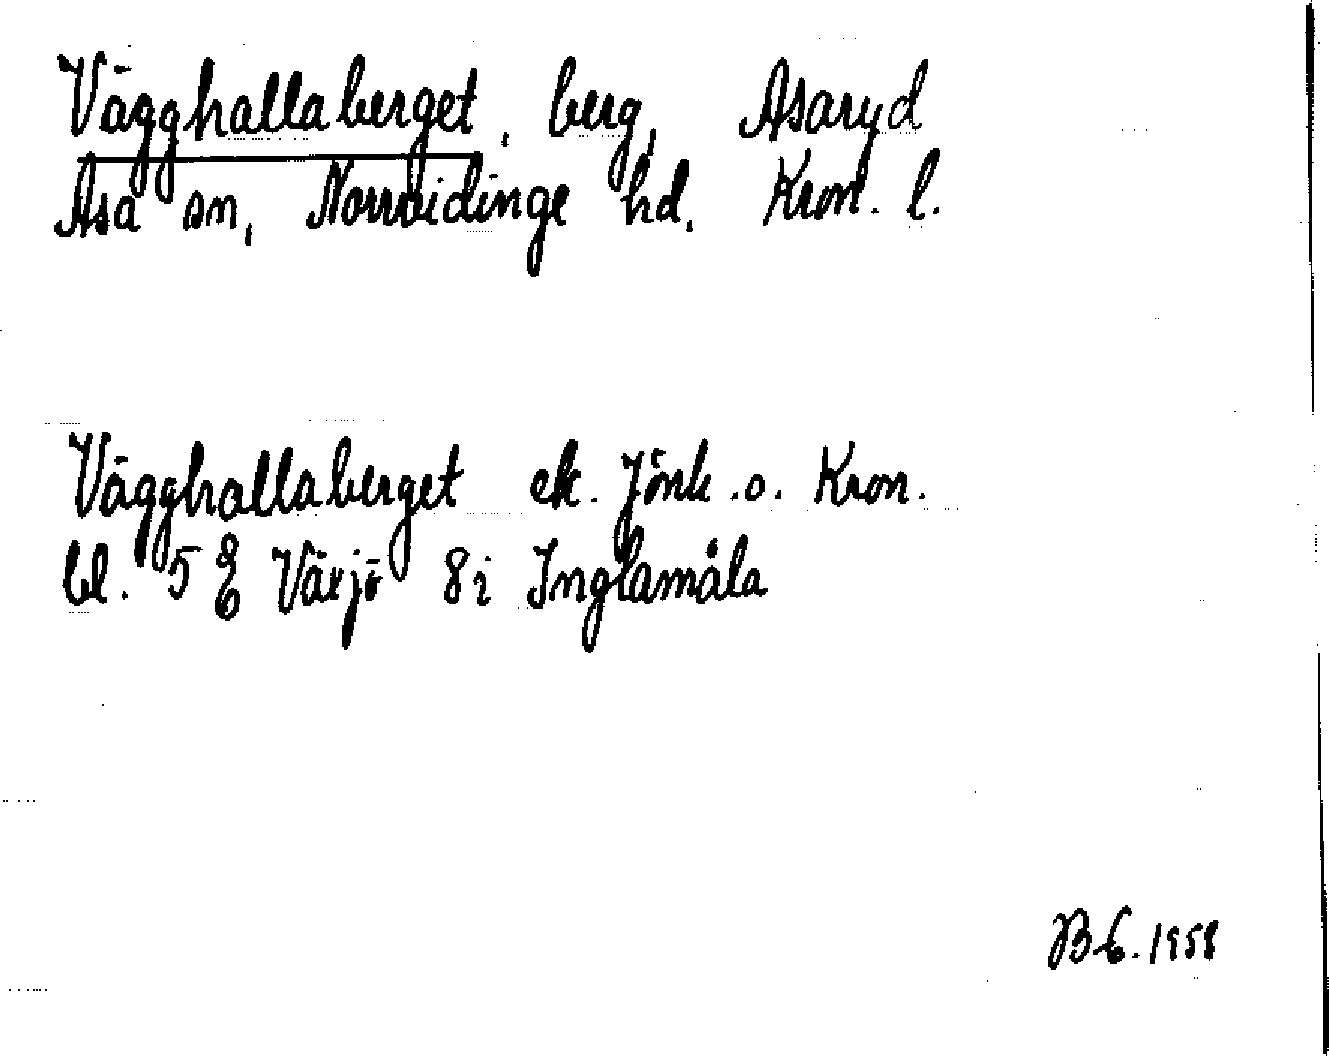 Vägghallaberget, berg, Asaryd
Asa sn, Norrvidinge hd. Kron. l.
Vägghallaberget ek. Jönk. o. Kron.
bl. 5 E Växjö 8i Inglamåla
B.E. 1958